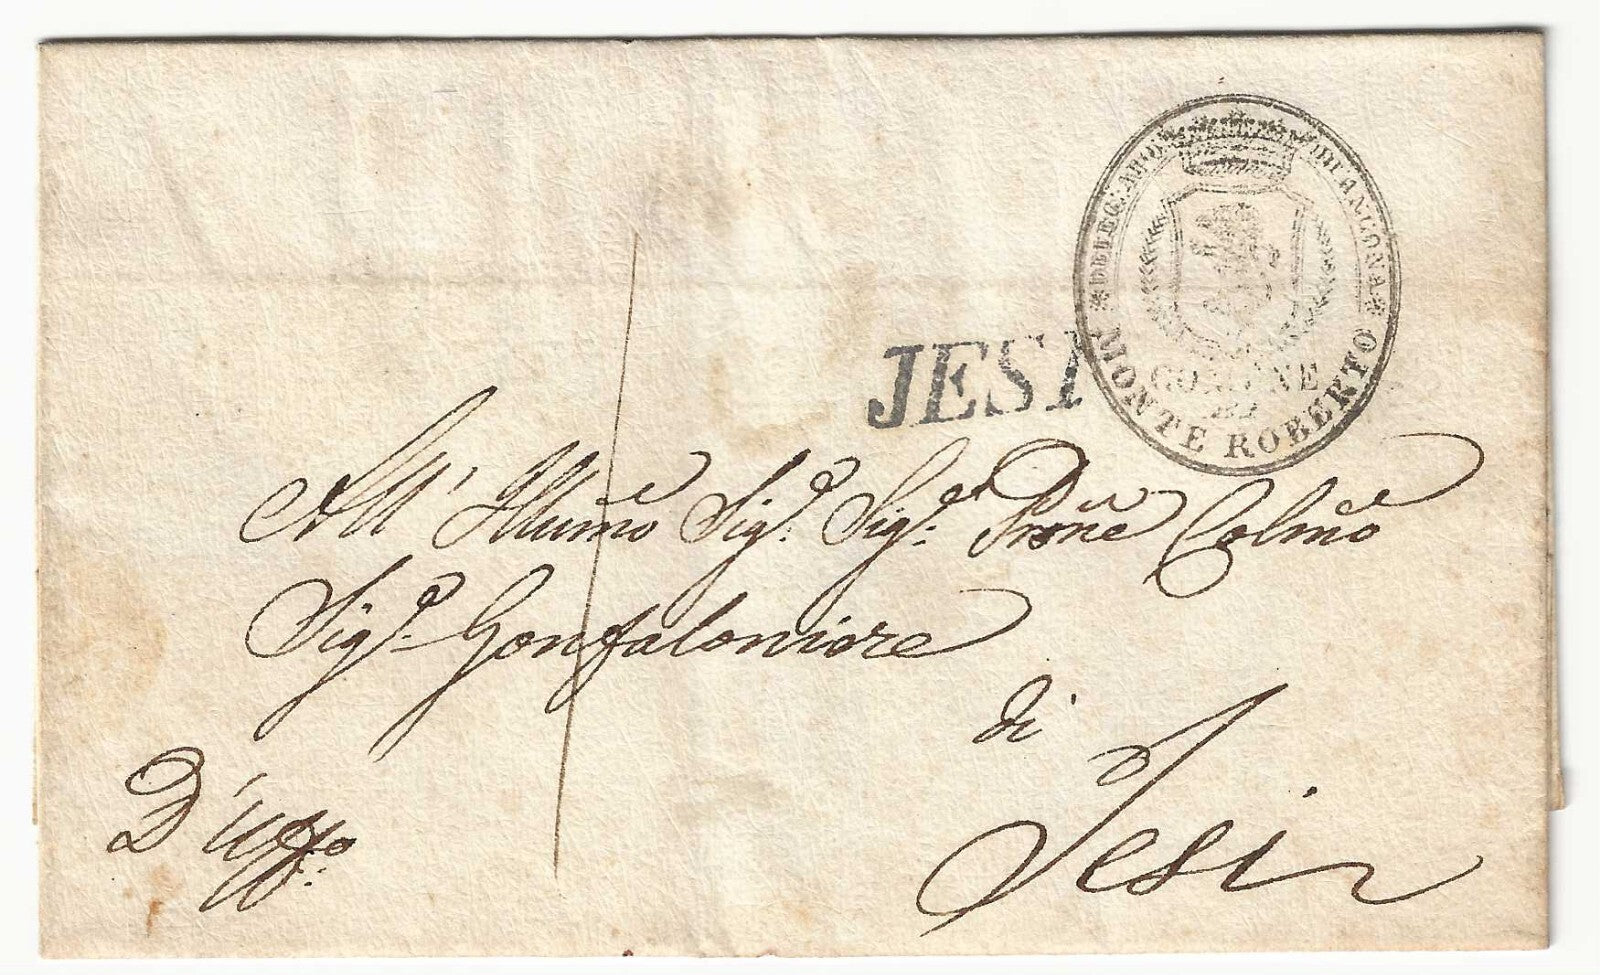 DELEGAZIONE DI ANCONA
COMUNE
DI
MONTE ROBERTO
JESI
All' Illumo Sigr. Sigr. Prone Colmo
Sigr. Gonfaloniere
di
D'uffo. Jesi